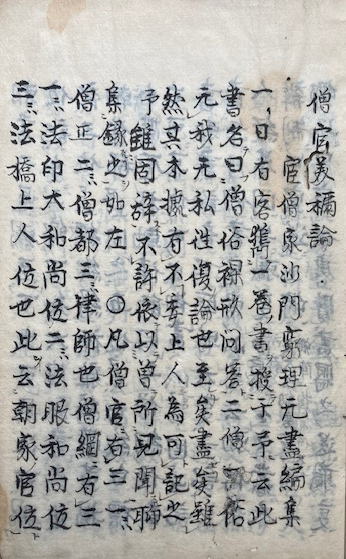 僧官美稱論
官僧家沙門窮理元盡編集
一日有客携一卷書授于予云此
書名曰僧俗裸形问荅二僧一俗
元我无私性復論也至矣盡矣雖
然其本據有不委上人為可記之
予雖固辞不許依以曽所見聞聊
集録之如左〇凡僧官有三一
僧正二僧都三律師也僧綱有三
一法印大和尚位二法眼和尚位
三法橋上人位也此云朝家官位